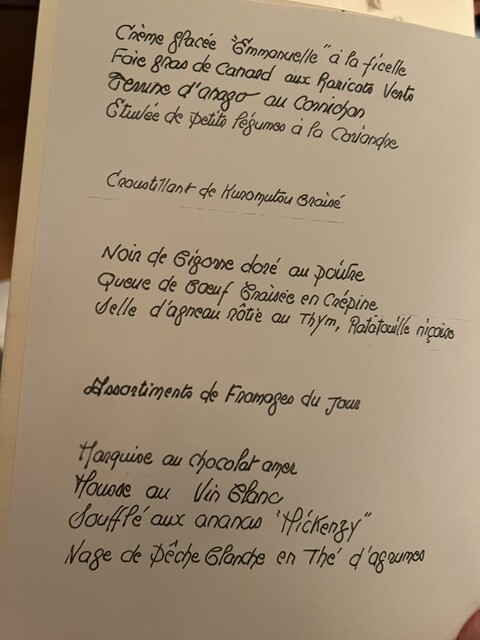 Crème glacée "Emmanuelle" à la ficelle
Foie gras de Canard aux Haricots Verts
Terrine d'anago au Cornichon
Etuvée de petits légumes à la Coriandre
Croustillant de Kuromutou Braisé
Noix de Cigogne doré au poivre
Queue de Bœuf Braisée en Crépine
Selle d'agneau rôtie au Thym, Ratatouille niçoise
Assortiments de Fromages du Jour
Marquise au chocolat amer
Mousse au Vin Blanc
Soufflé aux ananas "Mickenzy"
Nage de Pêche Blanche en Thé d'agrumes